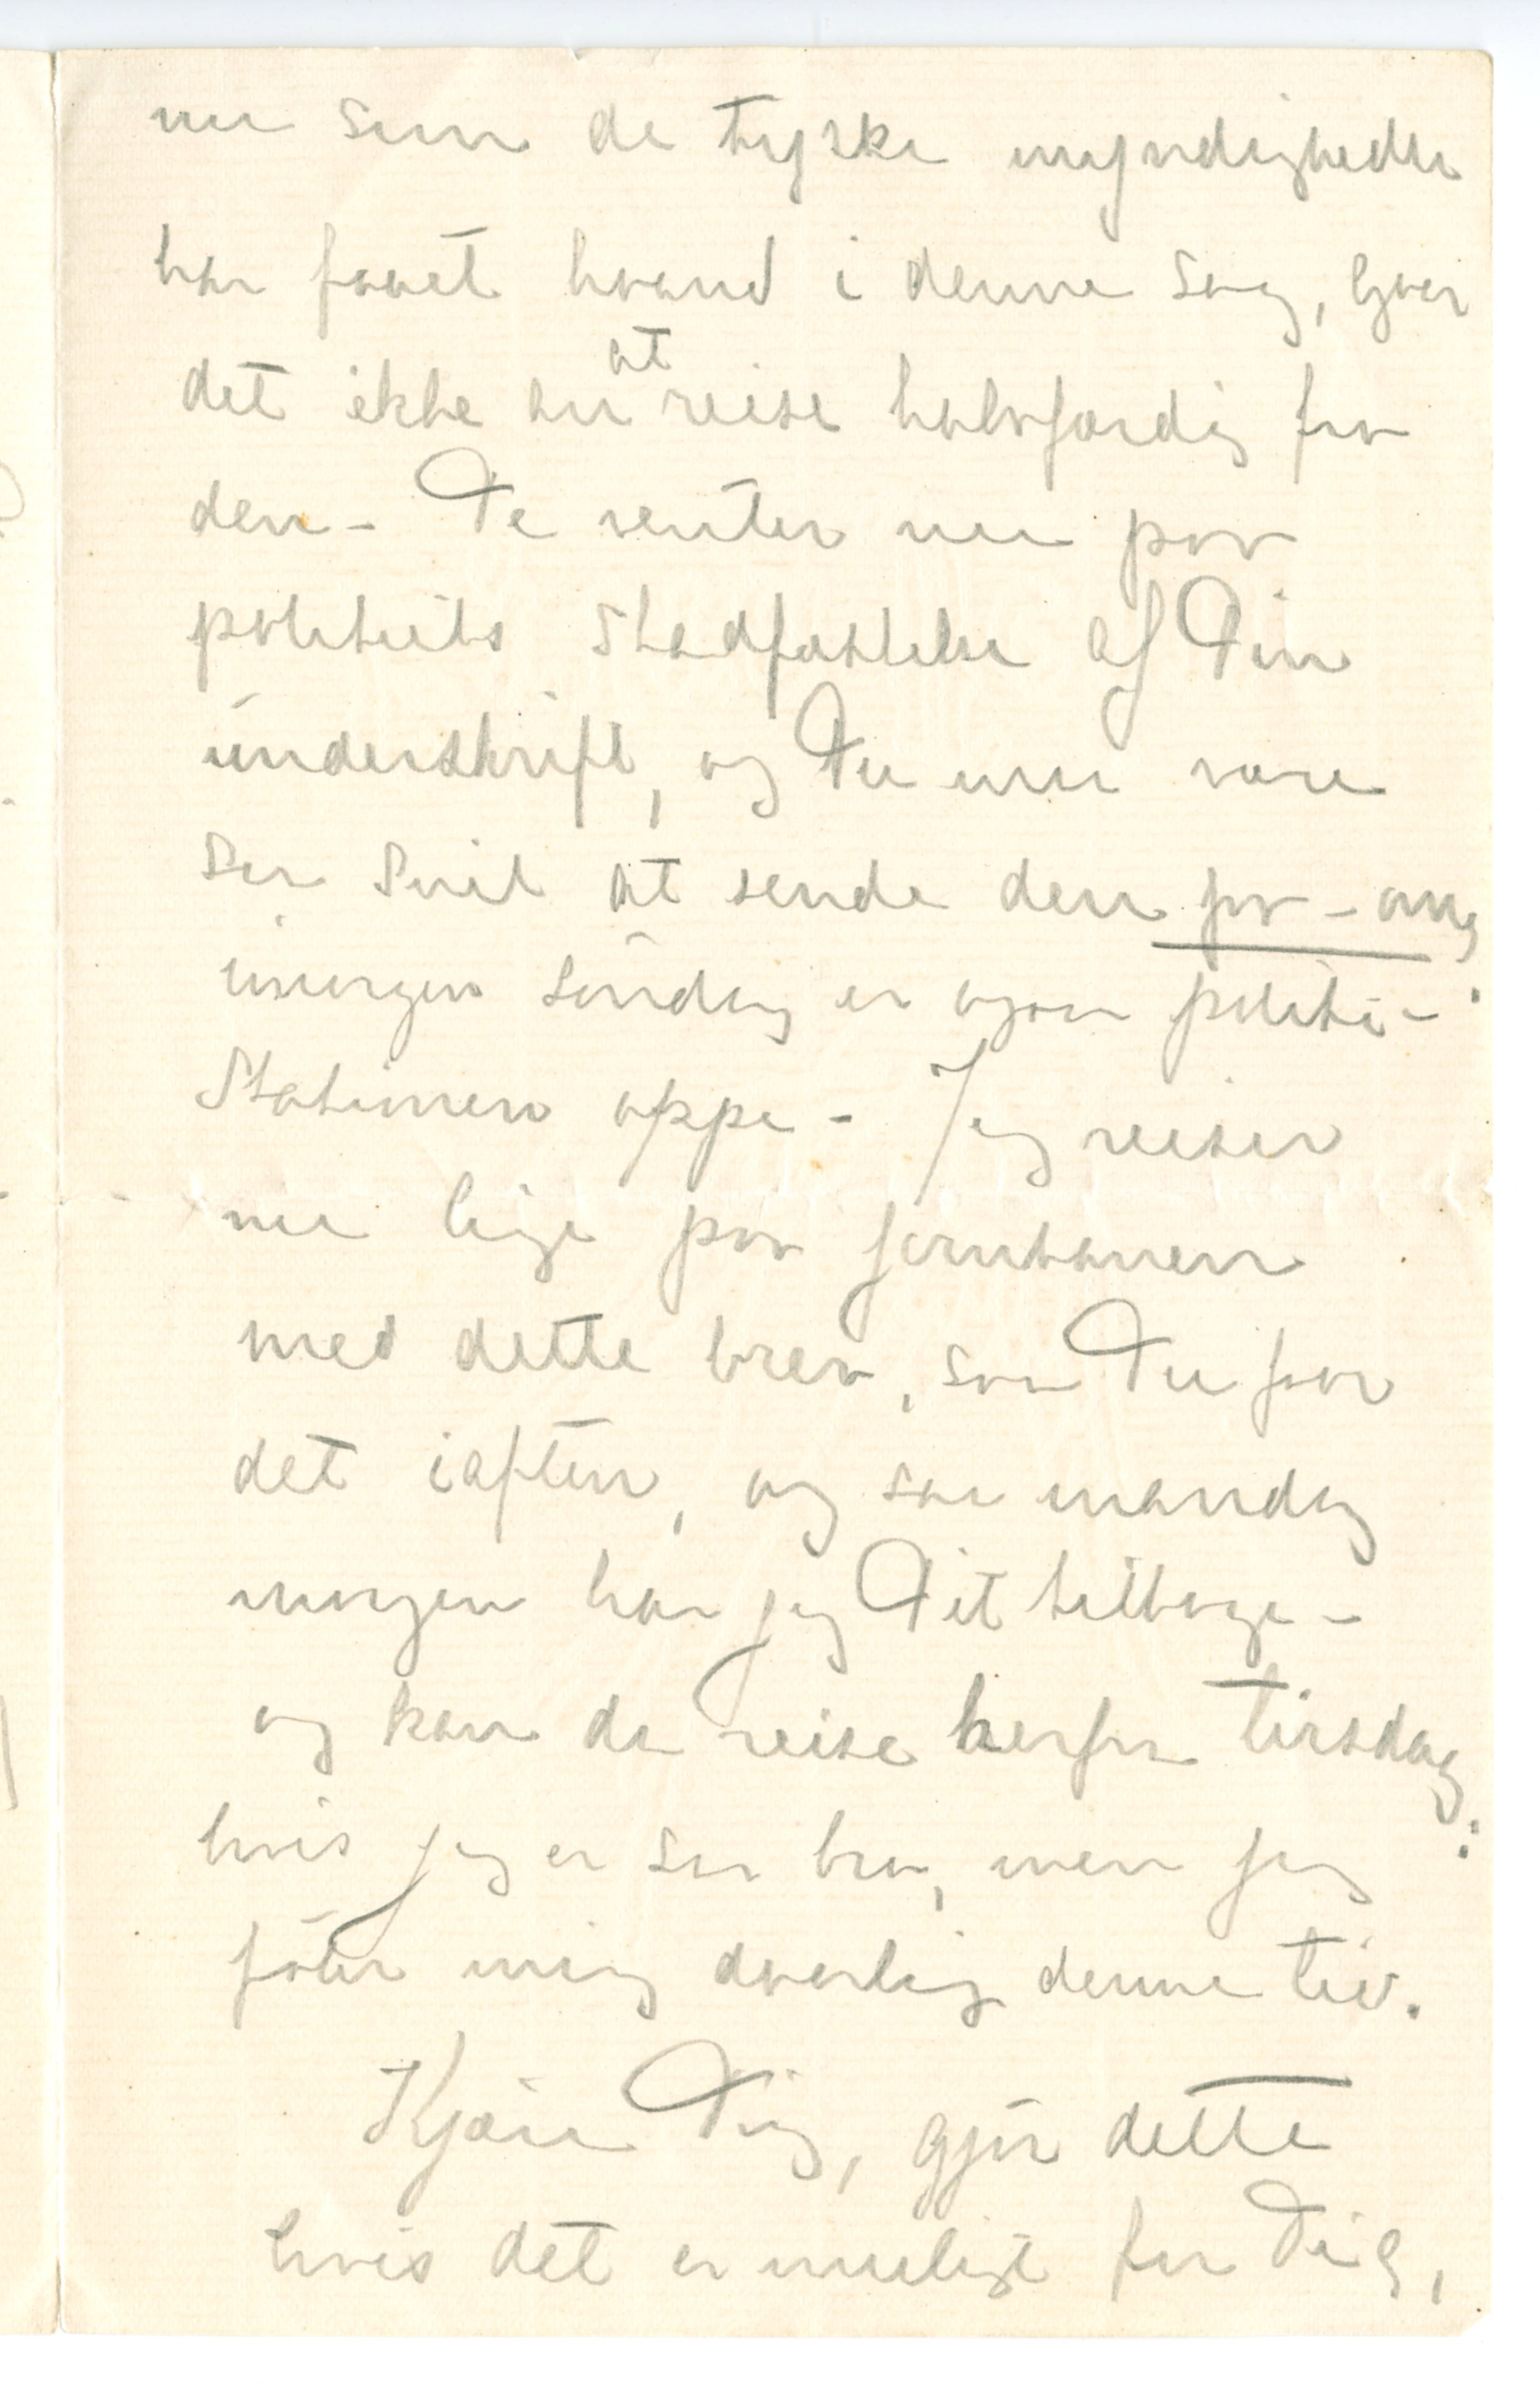 nu som de tyske myndigheder
har faaet haand i denne sag, gaar
det ikke an at reise halvfærdig fra
den – De venter nu paa
politiets Stadfæstelse af Din
underskrift, og Du maa være
saa snil at sende den paa – og
imorgen søndag er ogsaa politi-
Stationen oppe – Jeg reiser
nu lige paa jernbanen
med dette brev, saa Du faar
det iaften, og saa mandag
morgen har jeg Dit tilbage –
og kan da reise herfra tirsdag
hvis jeg er saa bra, men jeg
føler mig daarlig denne tid.
Kjære Dig, gjør dette
hvis det er muligt for Dig,